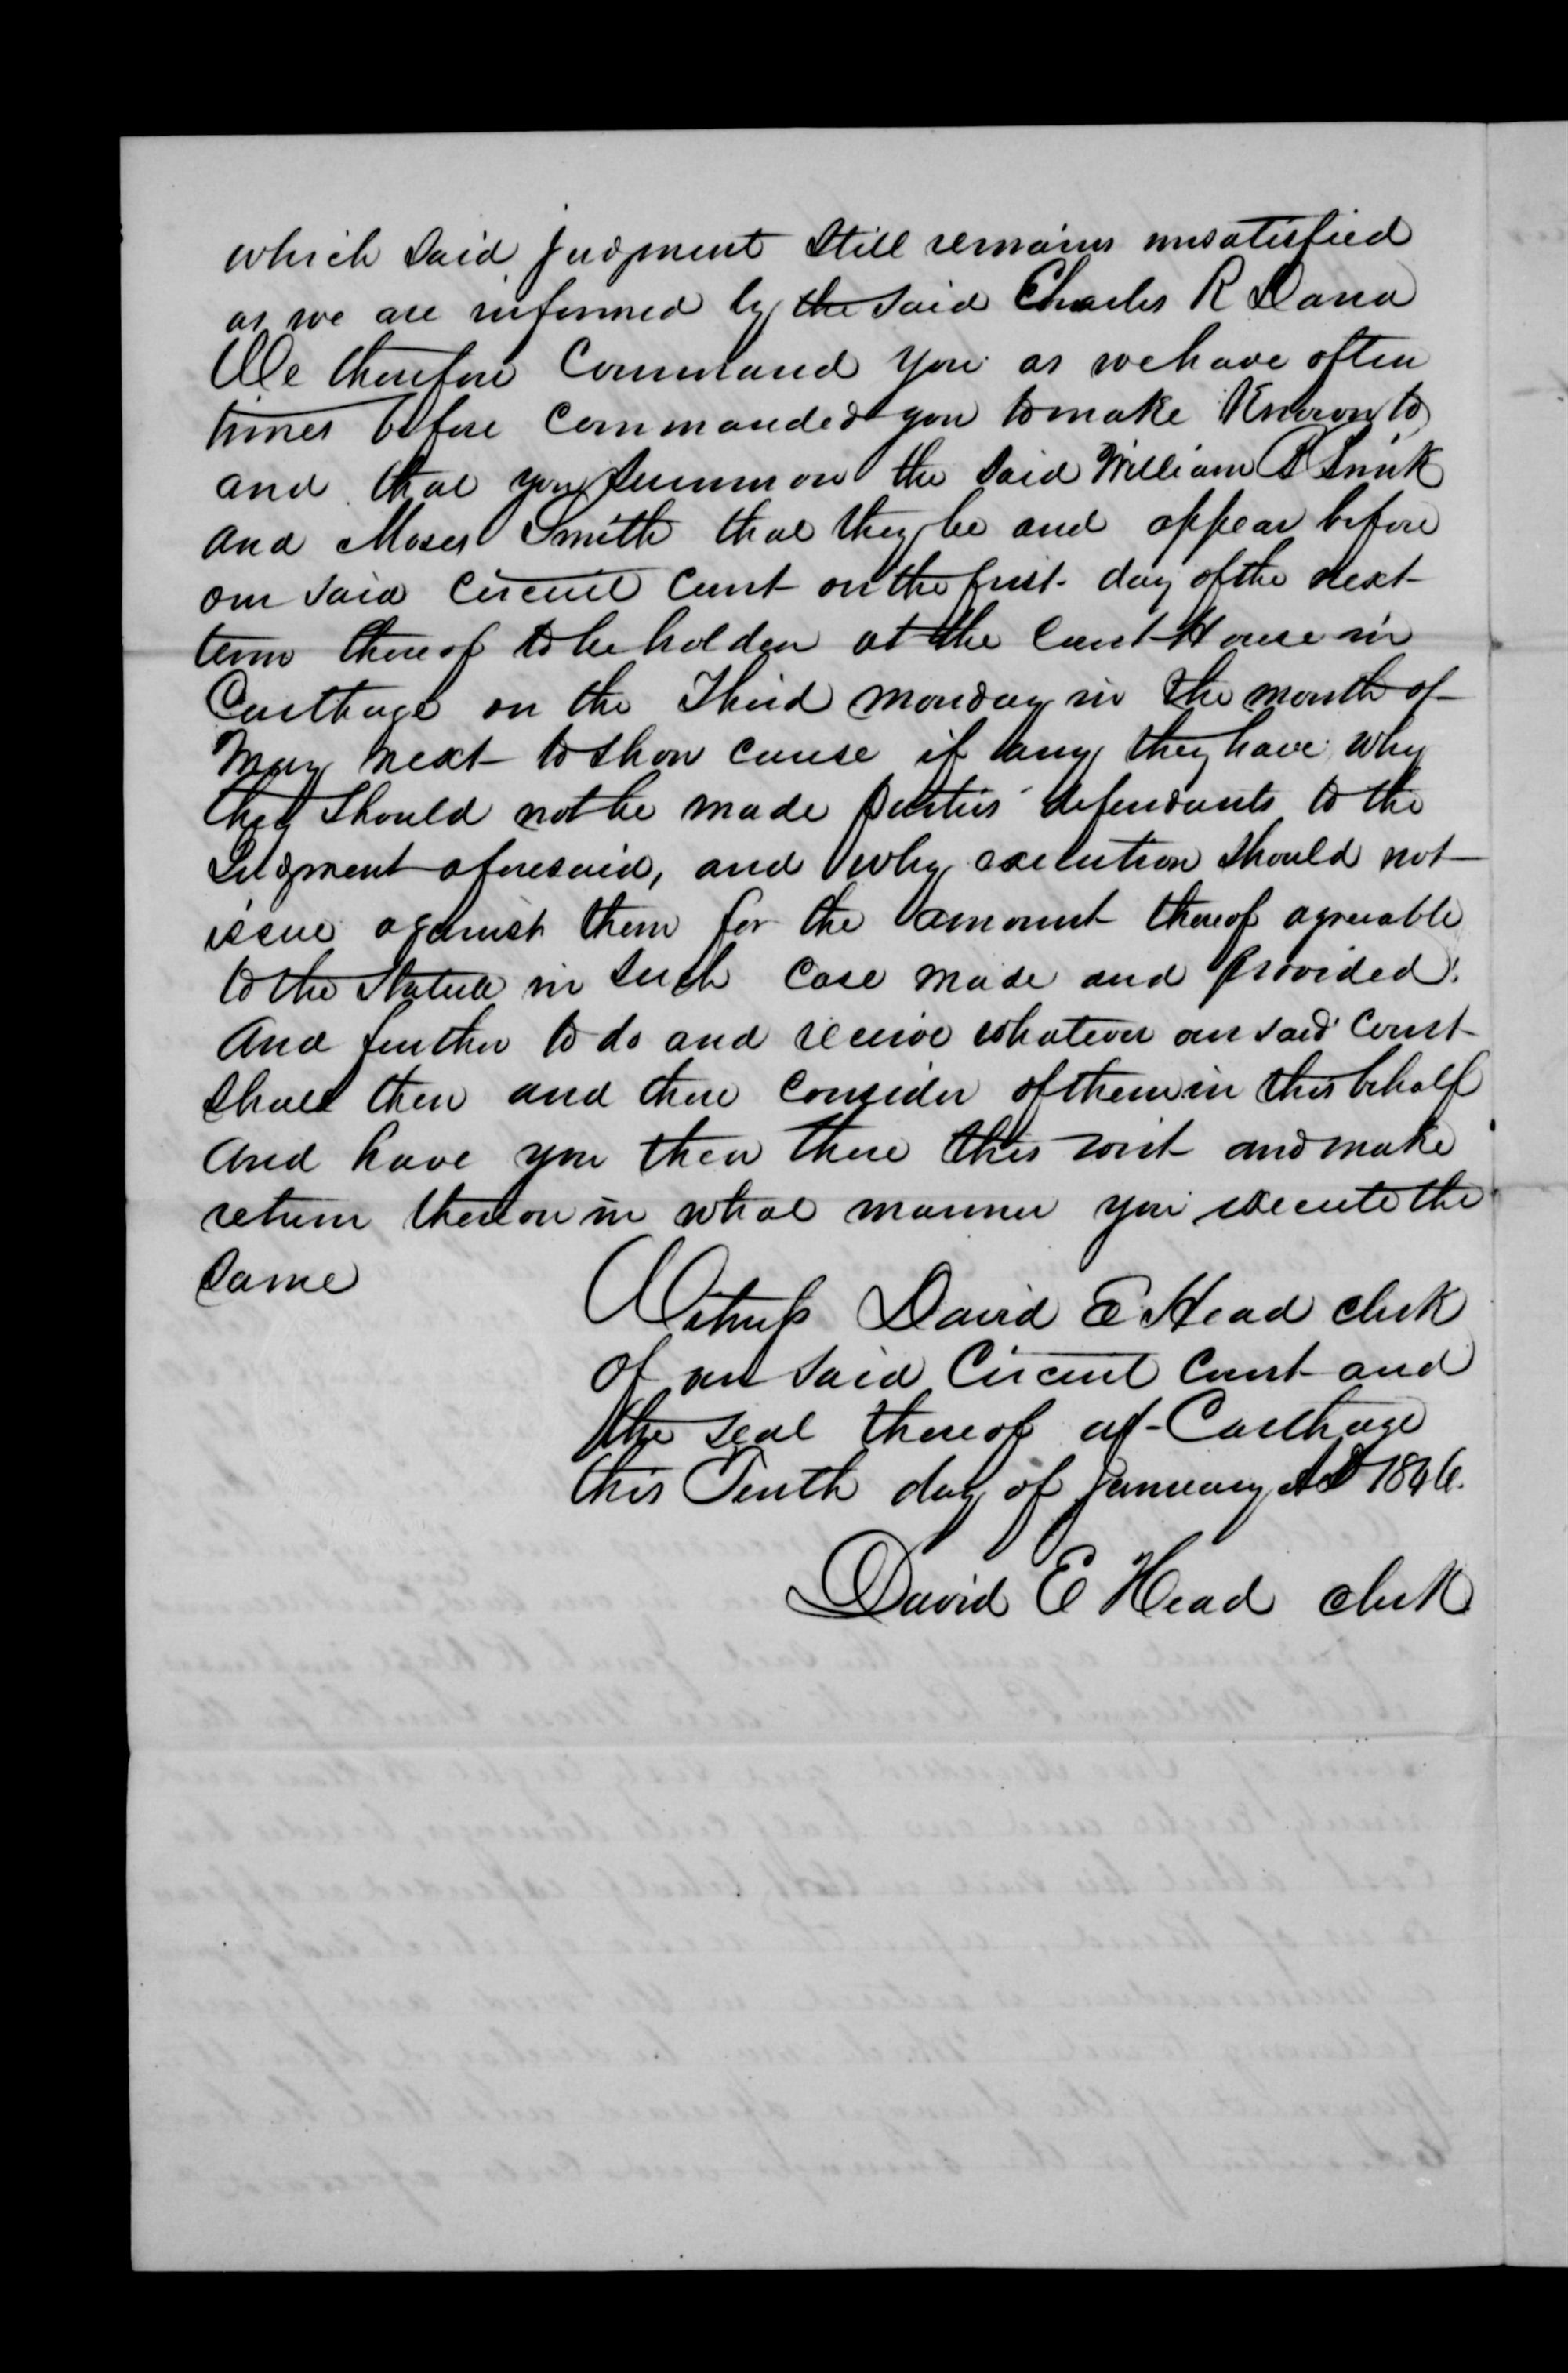 which said judgment still remains unsatisfied
as we are informed by the said Charles R Dana
We therefore Command you as we have often
times before commanded you to make Known to
and that you summon the said William
and Moses Smith that they be and appear before
our said Circuit Court on the first day of the next
term thereof to be holden at the Court House in
Carthage on the Third monday in the month of
May next to show cause if any they have why
they should not be made parties defendants to the
Judgment aforesaid, and why execution should not
issue against them for the amount thereof agreeable
to the Statute in such case made and provided.
And further to do and receive whatever our said Court
shall then and there consider of them in this behalf
And have you then there this writ and make
return thereon in what manner you execute the
same
Witness David E Head clerk
of our said Circuit Court and
the seal thereof at Carthage
this Tenth day of January AD 1846.
David E Head clerk